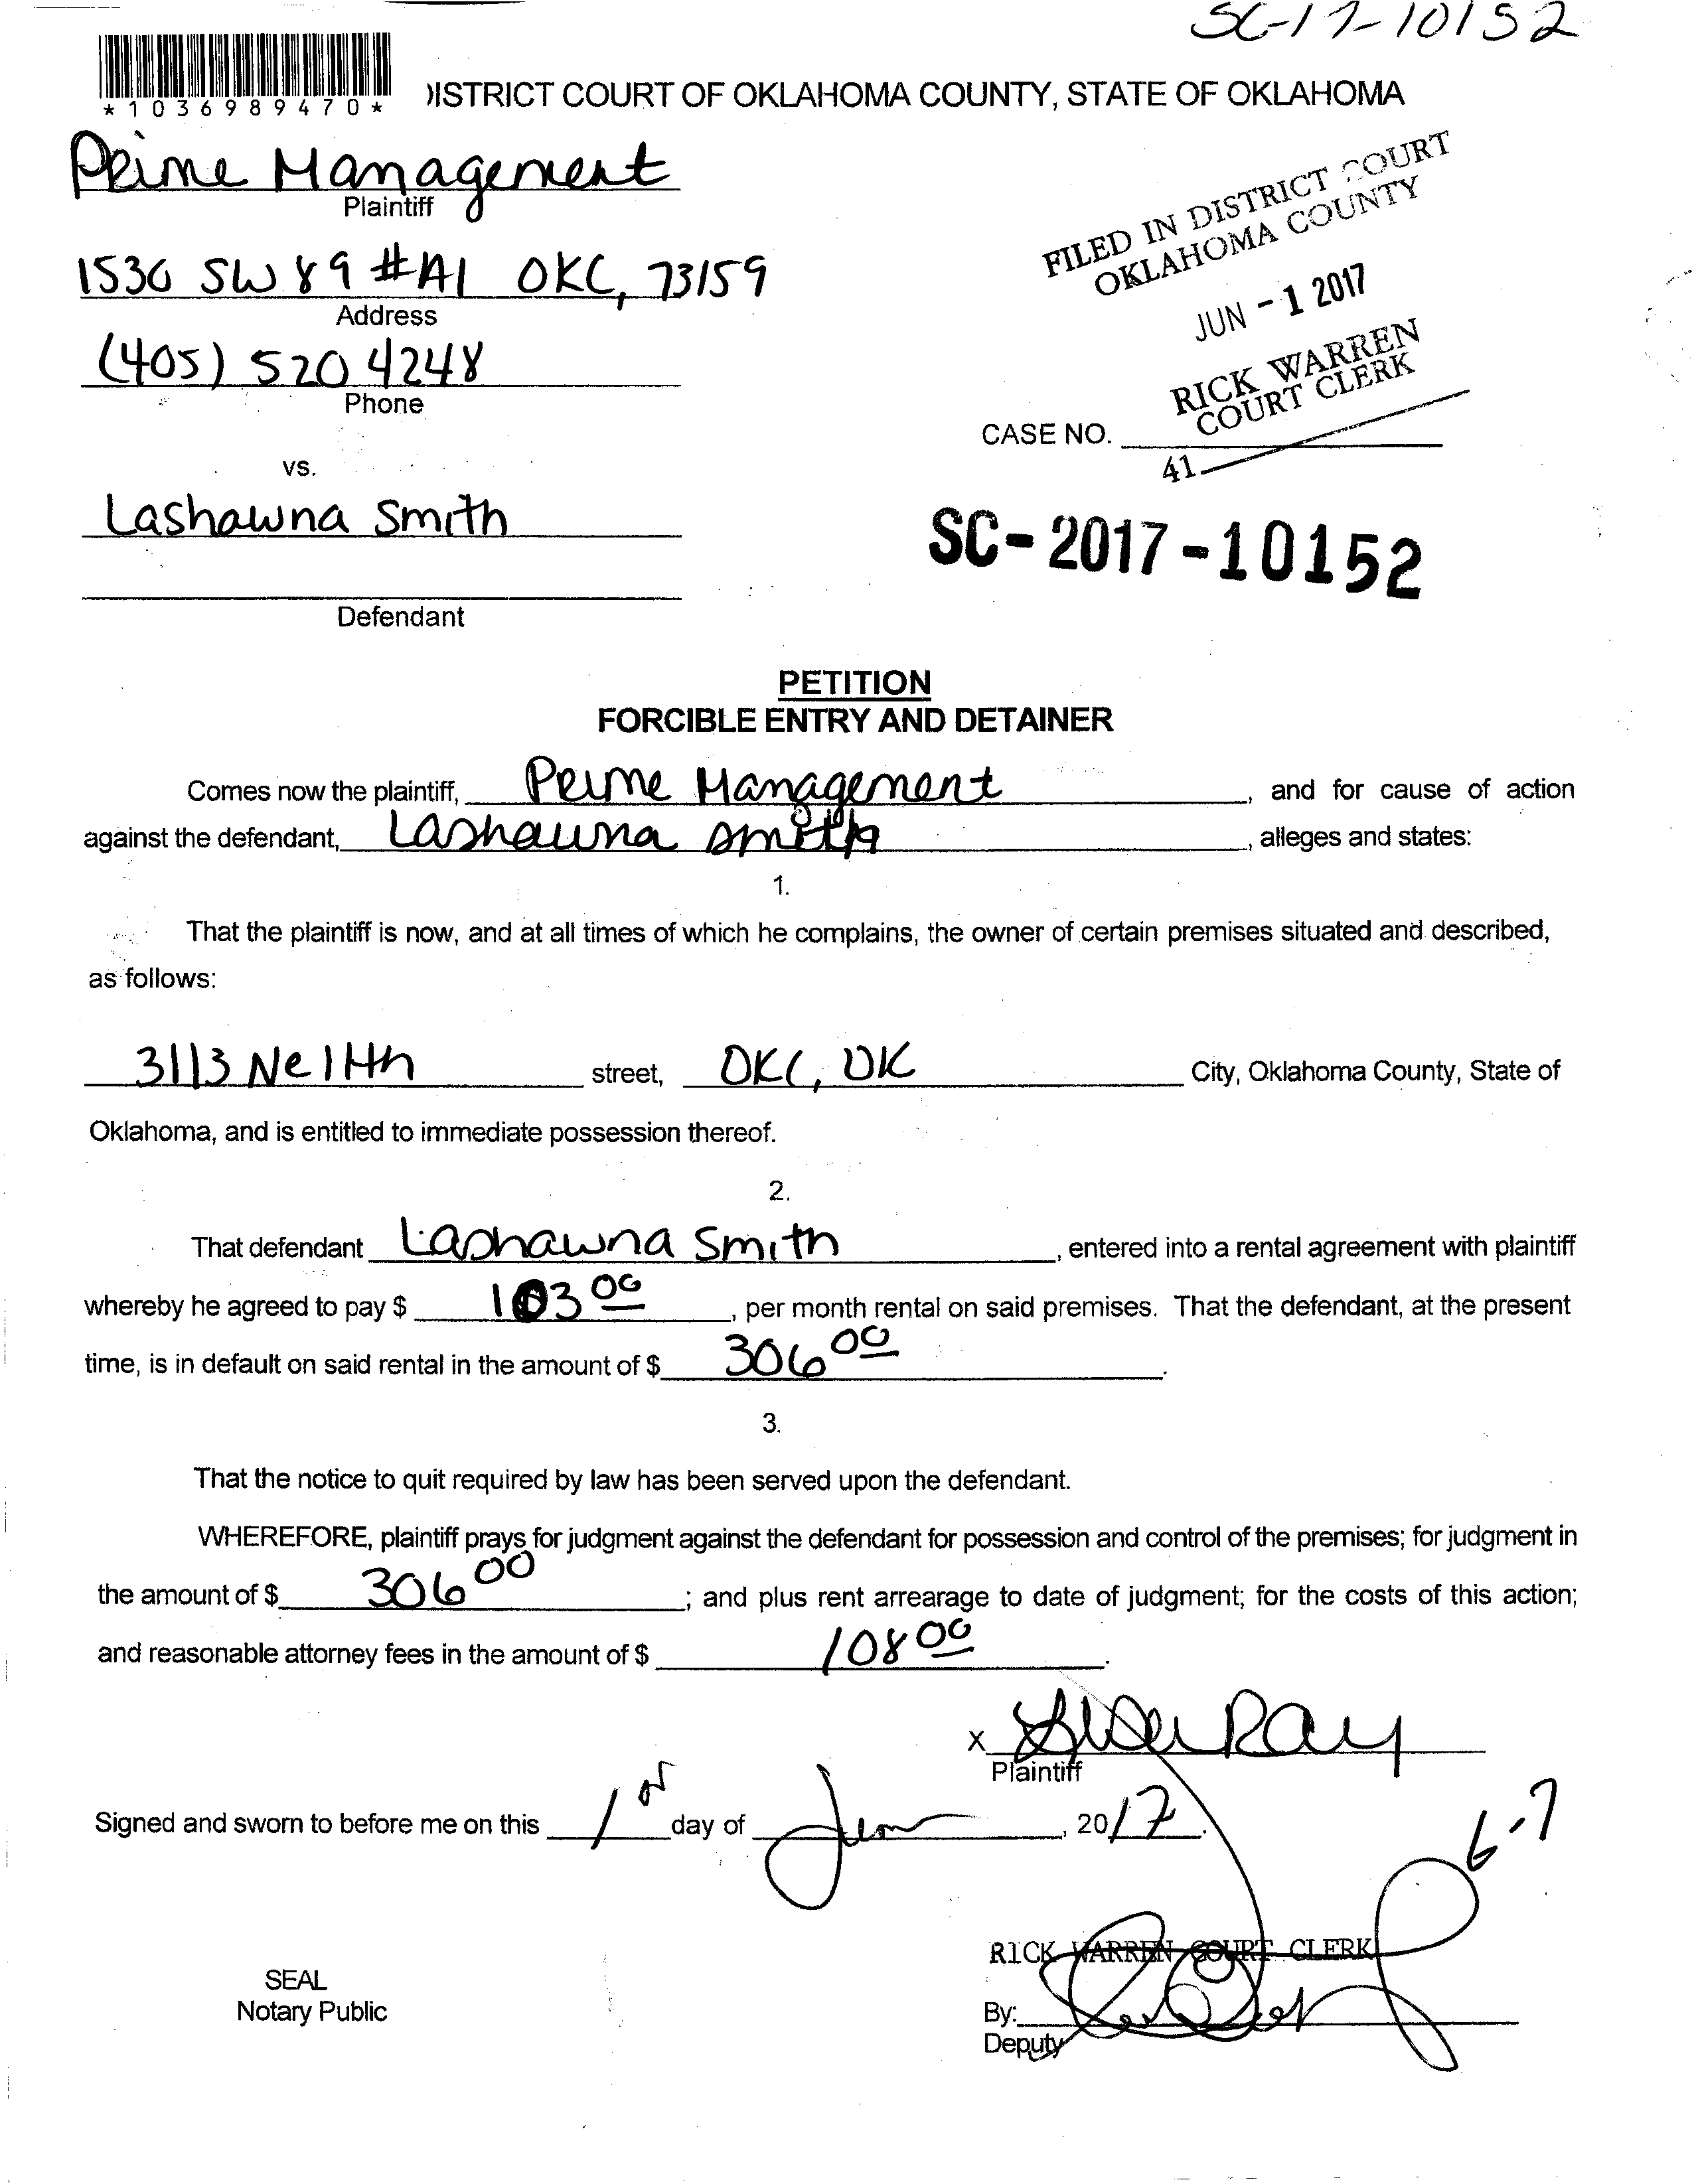 SC-17-10152
*1036989470*
DISTRICT COURT OF OKLAHOMA COUNTY, STATE OF OKLAHOMA
Prime Management
Plaintiff
1530 SW 89 #A1 OKC, 73159
Address
(405) 520 4248
Phone
FILED IN DISTRICT COURT
OKLAHOMA COUNTY
JUN - 1 2017
RICK WARREN
COURT CLERK
CASE NO.
41
vs.
Lashawna Smith
SC-2017-10152
Defendant
PETITION
FORCIBLE ENTRY AND DETAINER
Comes now the plaintiff, Prime Management, and for cause of action
against the defendant, Lashawna Smith, alleges and states:
1.
That the plaintiff is now, and at all times of which he complains, the owner of certain premises situated and described,
as follows:
3113 Ne 11th street, OKC, OK City, Oklahoma County, State of
Oklahoma, and is entitled to immediate possession thereof.
2.
That defendant Lashawna Smith, entered into a rental agreement with plaintiff
whereby he agreed to pay $ 103 00, per month rental on said premises. That the defendant, at the present
time, is in default on said rental in the amount of $ 306 00.
3.
That the notice to quit required by law has been served upon the defendant.
WHEREFORE, plaintiff prays for judgment against the defendant for possession and control of the premises; for judgment in
the amount of $ 306 00; and plus rent arrearage to date of judgment; for the costs of this action;
and reasonable attorney fees in the amount of $ 108 00.
X Ray
Plaintiff
Signed and sworn to before me on this 1 day of June, 2017.
6-7
RICK WARREN COURT CLERK
SEAL
Notary Public
By:
Deputy